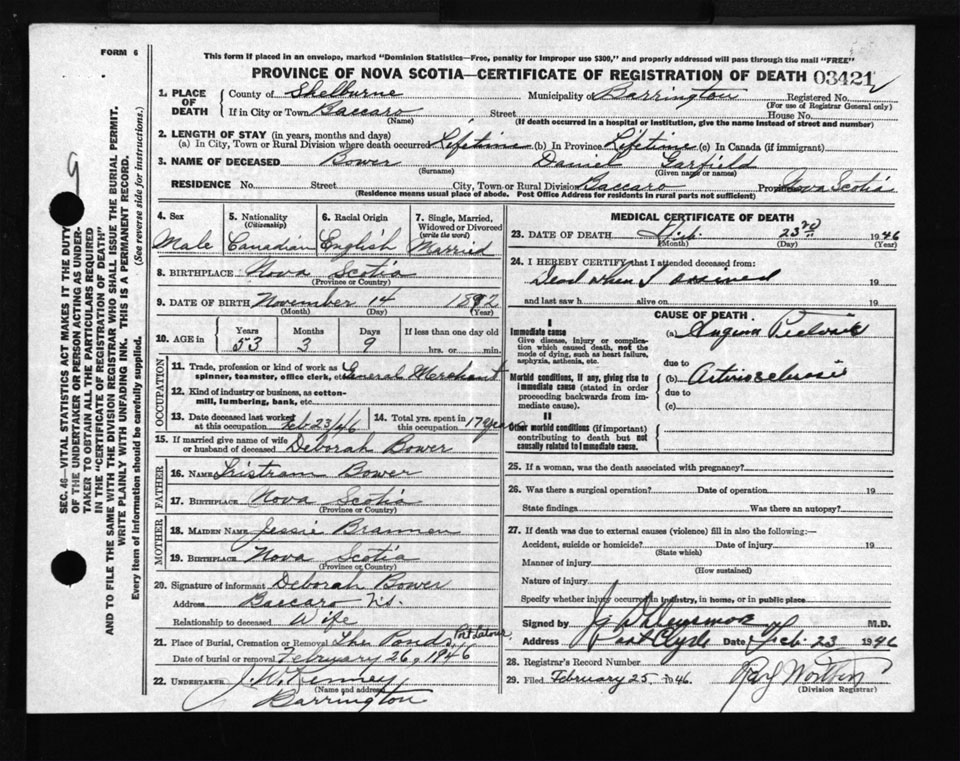 FORM 6
This form if placed in an envelope, marked "Dominion Statistics—Free, penalty for improper use $300," and properly addressed will pass through the mail "FREE"
PROVINCE OF NOVA SCOTIA—CERTIFICATE OF REGISTRATION OF DEATH 03421
1. PLACE OF DEATH County of Shelburne Municipality of Barrington Registered No.
(For use of Registrar General only)
If in City or Town Baccaro Street House No.
(Name) (If death occurred in a hospital or institution, give the name instead of street and number)
2. LENGTH OF STAY (in years, months and days)
(a) In City, Town or Rural Division where death occurred Lifetime (b) In Province Lifetime (c) In Canada (if immigrant)
3. NAME OF DECEASED Bower Daniel Garfield
(Surname) (Given name or names)
RESIDENCE No. Street City, Town or Rural Division Baccaro Province Nova Scotia
(Residence means usual place of abode. Post Office Address for residents in rural parts not sufficient)
SEC. 46—VITAL STATISTICS ACT MAKES IT THE DUTY
OF THE UNDERTAKER OR PERSON ACTING AS UNDER-
TAKER TO OBTAIN ALL THE PARTICULARS REQUIRED
IN THE "CERTIFICATE OF REGISTRATION OF DEATH"
AND TO FILE THE SAME WITH THE DIVISION REGISTRAR WHO SHALL ISSUE THE BURIAL PERMIT.
WRITE PLAINLY WITH UNFADING INK. THIS IS A PERMANENT RECORD.
Every item of information should be carefully supplied. (See reverse side for instructions.)
4. Sex 5. Nationality (Citizenship) 6. Racial Origin 7. Single, Married, Widowed or Divorced (write the word)
Male Canadian English Married
8. BIRTHPLACE Nova Scotia
(Province or Country)
9. DATE OF BIRTH November 14 1892
(Month) (Day) (Year)
10. AGE in Years Months Days If less than one day old
53 3 9 hrs. or min.
OCCUPATION
11. Trade, profession or kind of work as
spinner, teamster, office clerk, etc. General Merchant
12. Kind of industry or business, as cotton-
mill, lumbering, bank, etc.
13. Date deceased last worked
at this occupation Feb 23/46
14. Total yrs. spent in
this occupation 17 years
15. If married give name of wife
or husband of deceased Deborah Bower
FATHER
16. NAME Tristram Bower
17. BIRTHPLACE Nova Scotia
(Province or Country)
MOTHER
18. MAIDEN NAME Jessie Brannen
19. BIRTHPLACE Nova Scotia
(Province or Country)
20. Signature of informant Deborah Bower
Address Baccaro N.S.
Relationship to deceased Wife
21. Place of Burial, Cremation or Removal The Ponds, Port Latour
Date of burial or removal February 26, 1946
22. UNDERTAKER Kenney
(Name and address)
Barrington
MEDICAL CERTIFICATE OF DEATH
23. DATE OF DEATH Feb. 23rd 1946
(Month) (Day) (Year)
24. I HEREBY CERTIFY that I attended deceased from:
Dead when I arrived 19
and last saw h alive on 19
CAUSE OF DEATH
I
Immediate cause (a) Angina Pectoris
Give disease, injury or compli-
cation which caused death, not the
mode of dying, such as heart failure,
asphyxia, asthenia, etc.
due to
Morbid conditions, if any, giving rise to
immediate cause (stated in order
proceeding backwards from im-
mediate cause).
(b) Arteriosclerosis
due to
(c)
II
Other morbid conditions (if important)
contributing to death but not
causally related to immediate cause.
25. If a woman, was the death associated with pregnancy?
26. Was there a surgical operation? Date of operation 19
State findings Was there an autopsy?
27. If death was due to external causes (violence) fill in also the following:
Accident, suicide or homicide? Date of injury 19
(State which)
Manner of injury
(How sustained)
Nature of injury
Specify whether injury occurred in industry, in home, or in public place
Signed by M.D.
Address Port Clyde Date Feb. 23 1946
28. Registrar's Record Number
29. Filed February 25, 1946.
(Division Registrar)